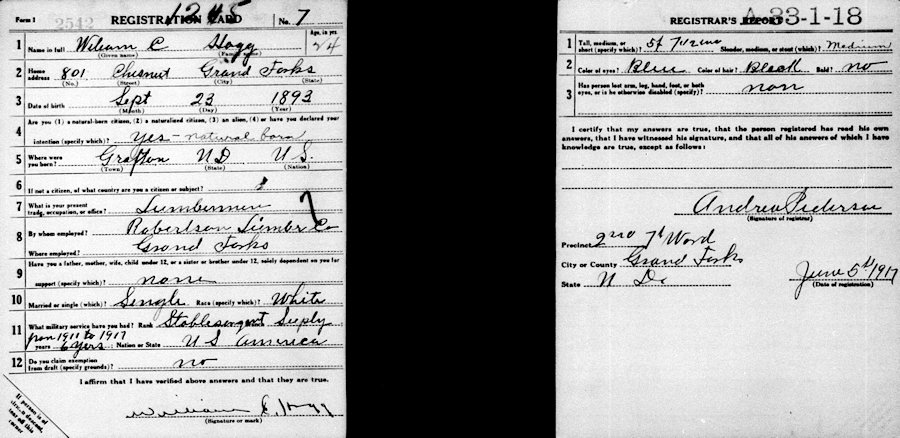 Form 1 2542 REGISTRATION CARD 1245 No. 7
1 Name in full William C Hogg Age, in yrs 24
(Given name) (Family name)
2 Home address 801 Chesnut Grand Forks
(No.) (Street) (City) (State)
3 Date of birth Sept 23 1893
(Month) (Day) (Year)
4 Are you (1) a natural-born citizen, (2) a naturalized citizen, (3) an alien, (4) or have you declared your
intention (specify which)? Yes - natural born
5 Where were you born? Grafton ND U S.
(Town) (State) (Nation)
6 If not a citizen, of what country are you a citizen or subject?
7 What is your present trade, occupation, or office? Lumberman 7
8 By whom employed? Robertson Lumber Co
Where employed? Grand Forks
9 Have you a father, mother, wife, child under 12, or a sister or brother under 12, solely dependent on you for
support (specify which)? none
10 Married or single (which)? Single Race (specify which)? White
11 What military service have you had? Rank Stablesergent Supply
from 1911 to 1917
years 6 yers ; Nation or State U S America
12 Do you claim exemption from draft (specify grounds)? no
I affirm that I have verified above answers and that they are true.
William C. Hogg
(Signature or mark)
If person is of
corner
REGISTRAR'S REPORT A-33-1-18
1 Tall, medium, or short (specify which)? 5f 7 Slender, medium, or stout (which)? Medium
2 Color of eyes? Blue Color of hair? Black Bald? no
3 Has person lost arm, leg, hand, foot, or both eyes, or is he otherwise disabled (specify)? non
I certify that my answers are true, that the person registered has read his own
answers, that I have witnessed his signature, and that all of his answers of which I have
knowledge are true, except as follows:
Andrew Pederson
(Signature of registrar)
Precinct 2nd 7th Word
City or County Grand Forks
State N D.
June 5th 1917
(Date of registration)